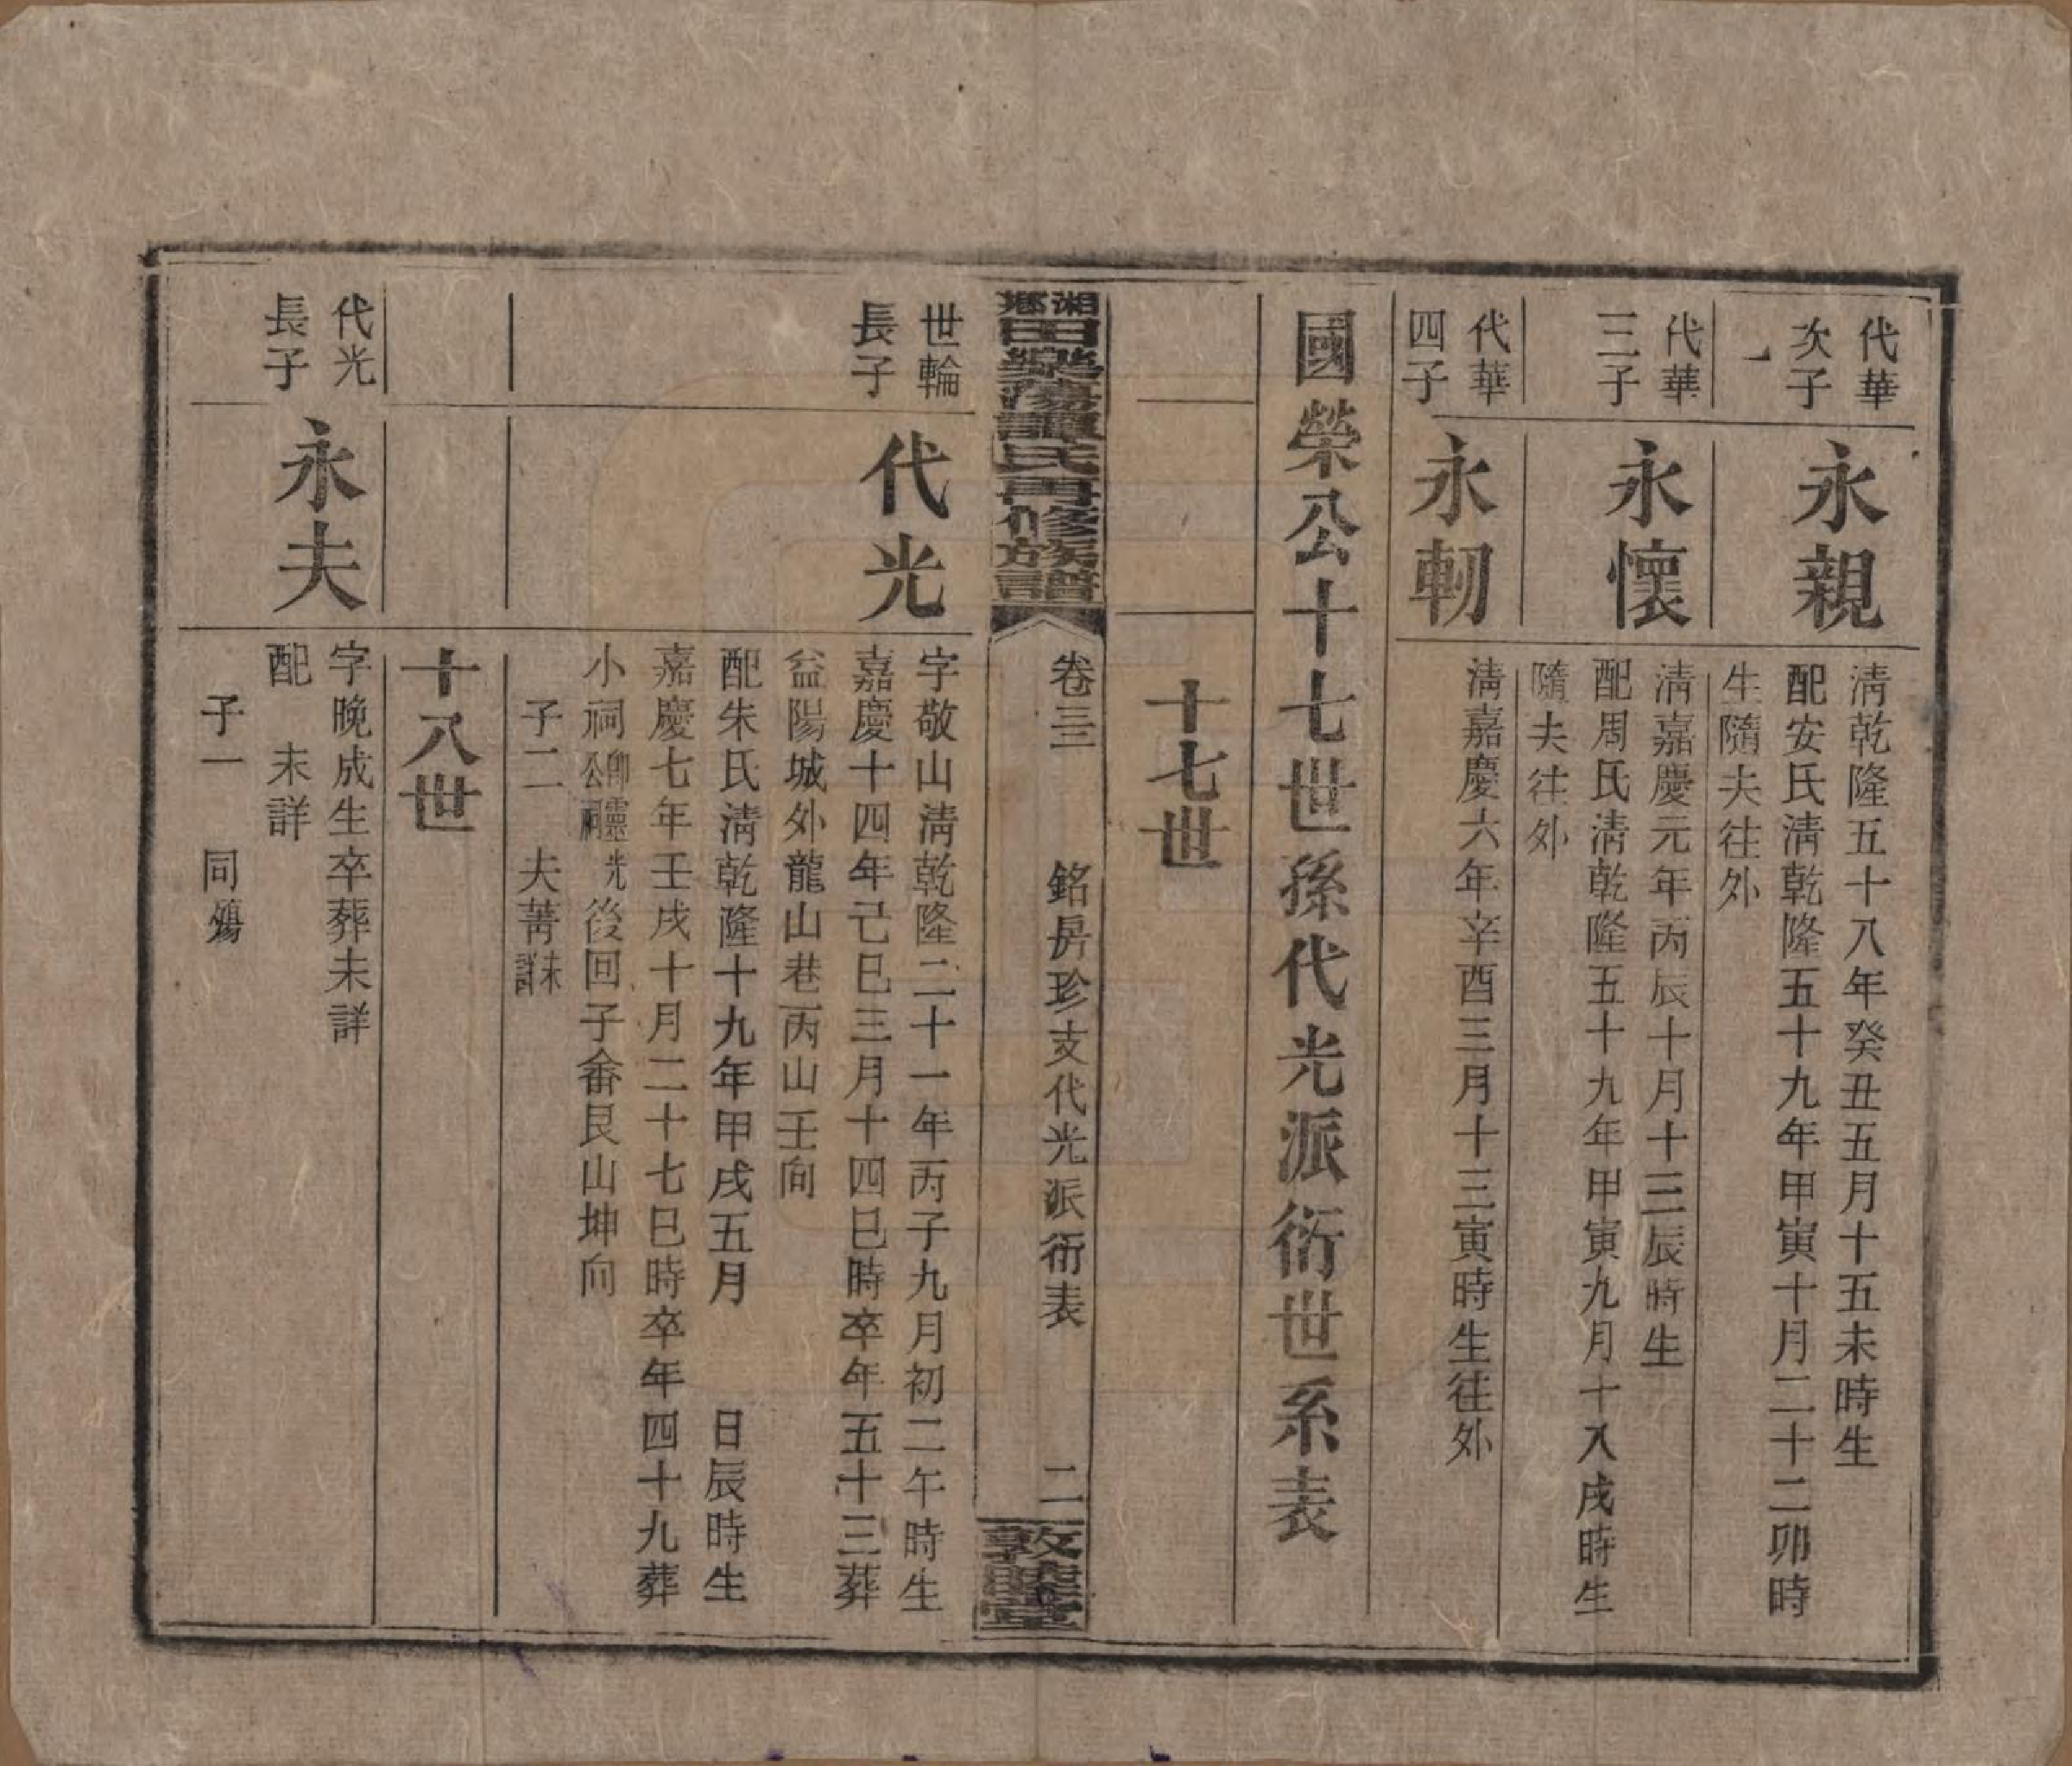 代華
次子
永親
清乾隆五十八年癸丑五月十五未時生
配安氏清乾隆五十九年甲寅十月二十二卯時
生隨夫往外
代華
三子
永懷
清嘉慶元年丙辰十月十三辰時生
配周氏清乾隆五十九年甲寅九月十八戌時生
隨夫往外
代華
四子
永軔
清嘉慶六年辛酉三月十三寅時生往外
國榮公十七世孫代光派衍世系表
十七世
湘鄉
田樂蕩譚氏四修族譜
卷三
銘房珍支代光派衍表
二
敦睦堂
世輪
長子
代光
字敬山清乾隆二十一年丙子九月初二午時生
嘉慶十四年己巳三月十四巳時卒年五十三葬
益陽城外龍山巷丙山壬向
配朱氏清乾隆十九年甲戌五月 日辰時生
嘉慶七年壬戌十月二十七巳時卒年四十九葬
小祠卿靈光公祠後回子畬艮山坤向
子二 夫菁未詳
十八世
代光
長子
永夫
字晚成生卒葬未詳
配 未詳
子一 同殤